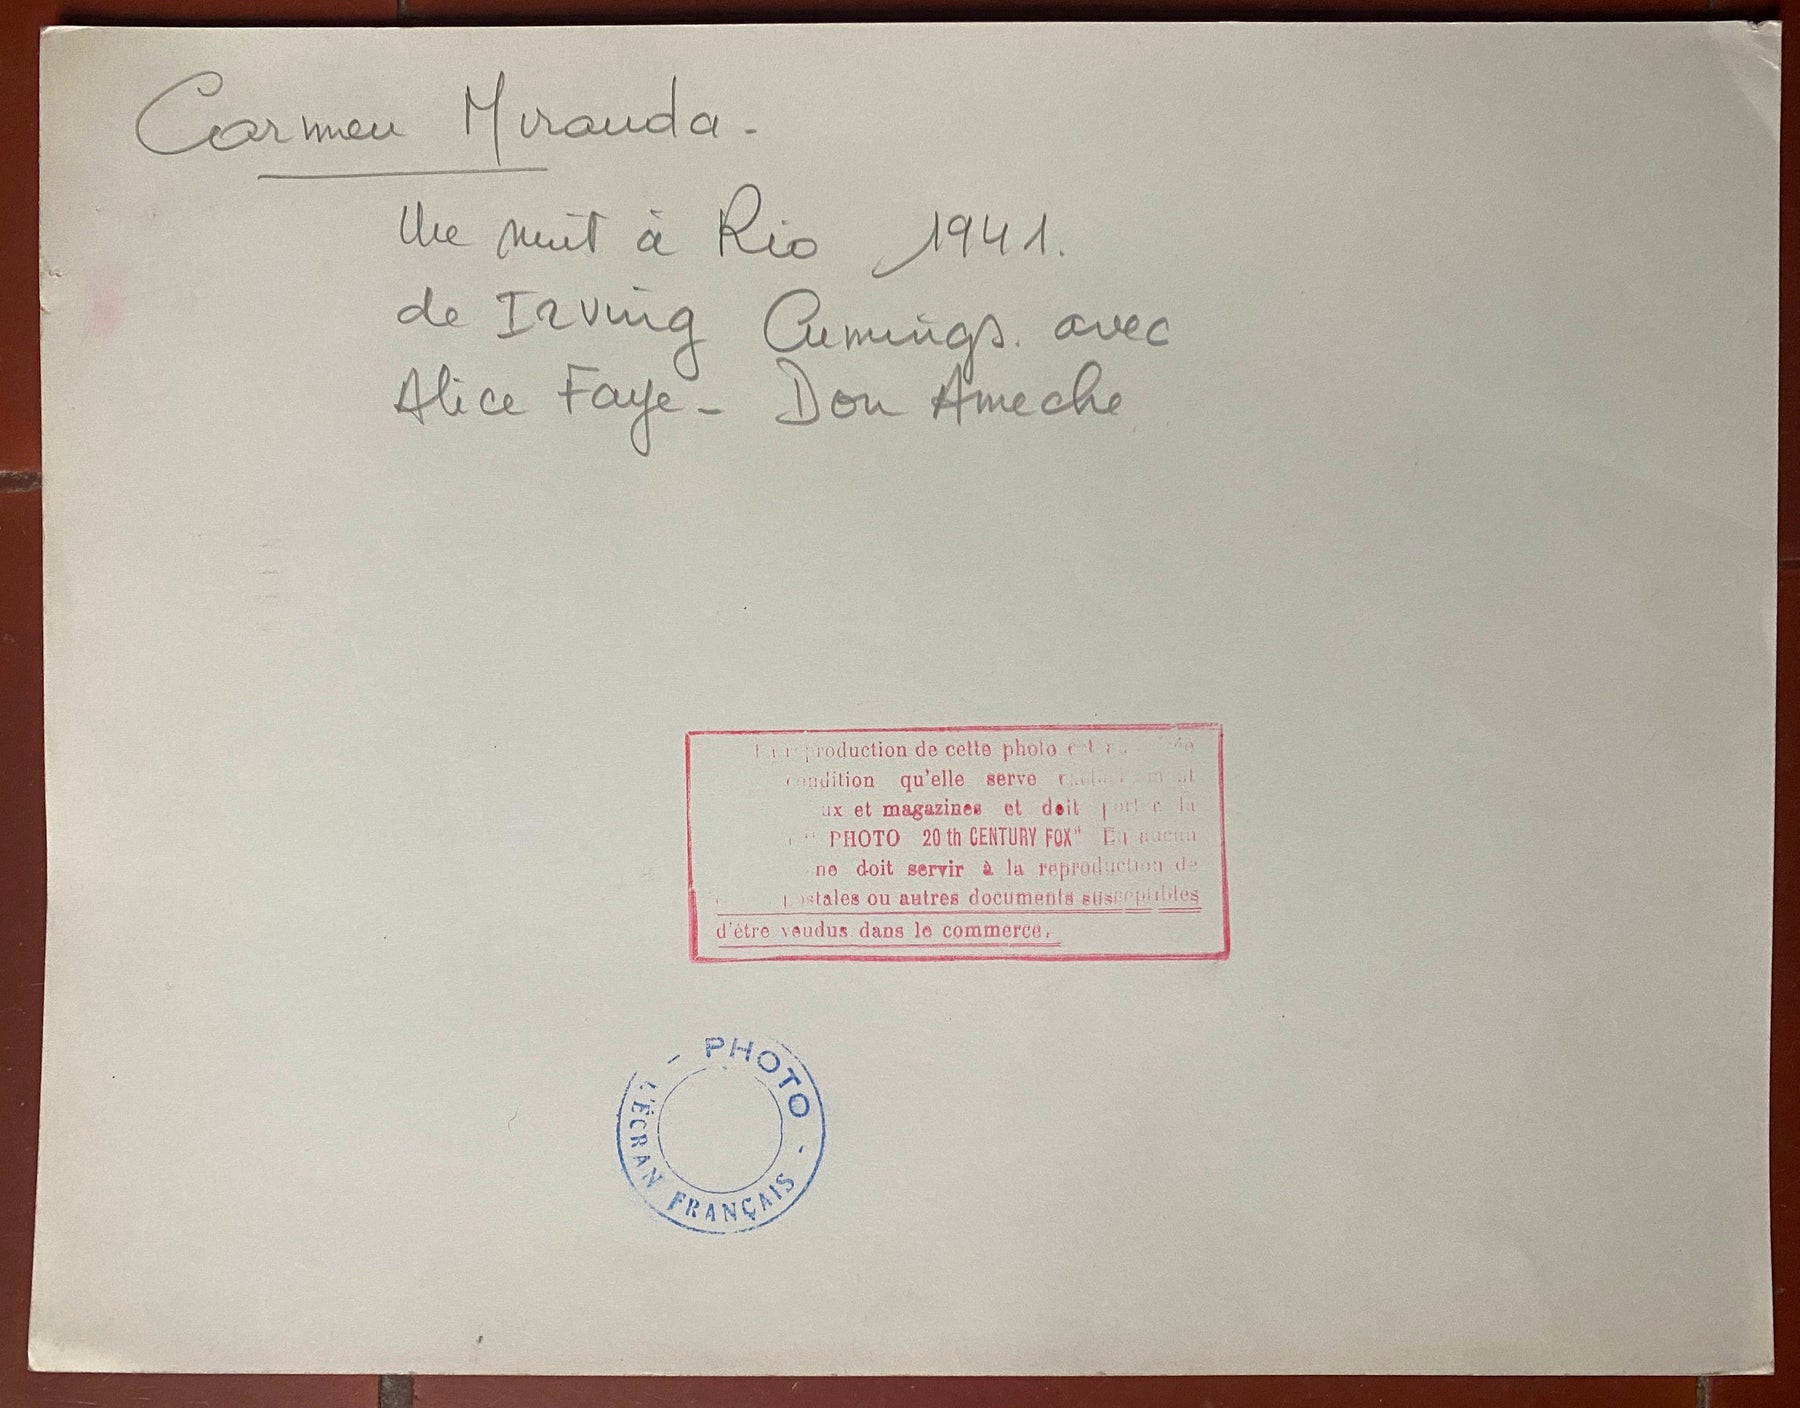 Carmen Miranda.
Une nuit à Rio 1941.
de Irving Cumings. avec
Alice Faye - Don Ameche
reproduction de cette photo
condition qu'elle serve
ux et magazines et doit porter la
" PHOTO 20 th CENTURY FOX" En aucun
ne doit servir à la reproduction de
postales ou autres documents susceptibles
d'être vendus dans le commerce.
- PHOTO -
L'ÉCRAN FRANÇAIS